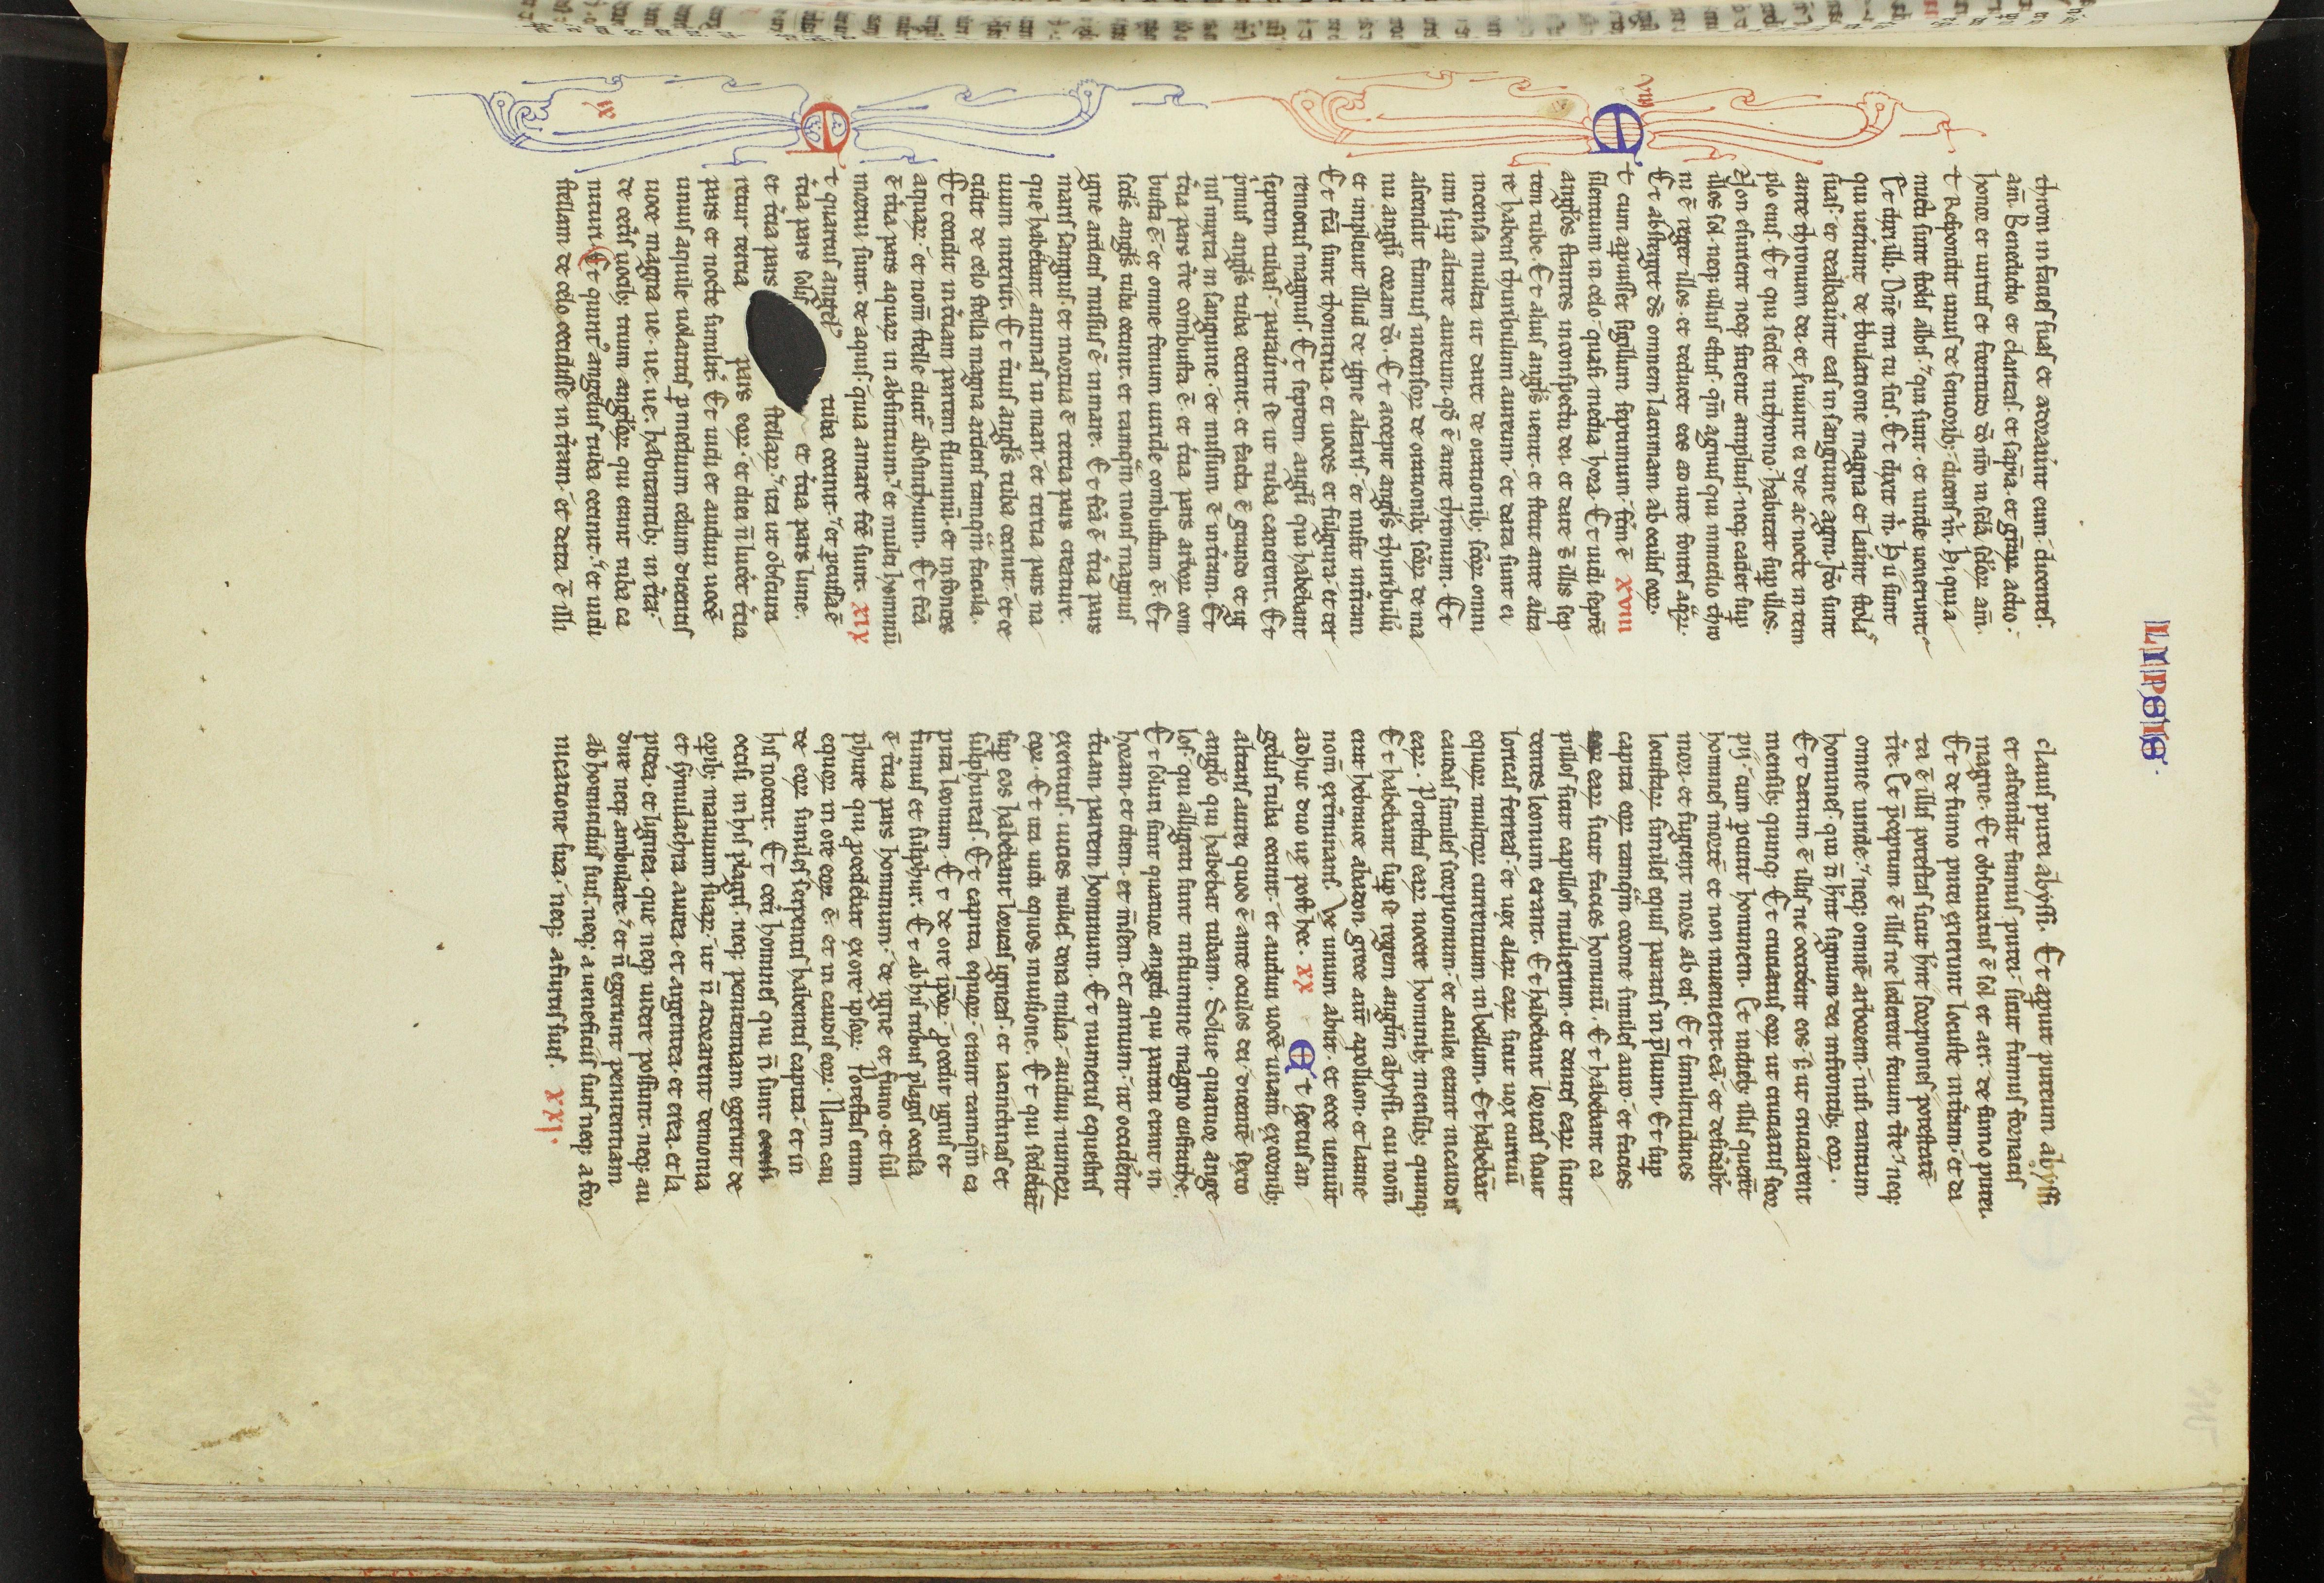 LIPSIS.
throni in facies suas et adorauerunt eum. dicentes.
am̄. Benedictio et claritas. et sapīa. et gr̄aꝝ actio.
honor et uirtus et fortitudo dō nr̄o in sclā sclōꝝ am̄.
t Respondit unus de seniorib; dicens m̄. Hi qui a
micti sunt stolis albis. qui sunt. et unde uenerunt.
Et dixi illi. Dn̄e mi tu scis. Et dixit m̄. Hii sunt
qui ueniunt de tribulatione magna et lauerunt stolas
suas. et dealbauerunt eas in sanguine agni. Ido sunt
ante thronum dei et seruiunt ei die ac nocte in tem
plo eius. Et qui sedet in throno. habitat sup illos.
Non esurient neq; sitient amplius. neq; cadet sup
illos sol. neq; ullus estus. qm̄ agnus qui in medio thro
ni ē reget illos. et deducet eos ad uite fontes aq̄ꝝ.
Et absterget ds̄ omnem lacrimam ab oculis eoꝝ.
viii
Et cum aperuisset sigillum septimum. fcm̄ ē xviii
silentium in celo. quasi media hora. Et uidi septē
angelos stantes in conspectu dei. et date s̄ illis sep
tem tube. Et alius angl̄s uenit. et stetit ante alta
re habens thuribulum aureum. et data sunt ei
incensa multa ut daret de orationib; scōꝝ omni
um sup altare aureum. qd̄ ē ante thronum. Et
ascendit fumus incensoꝝ de orationib; scōꝝ de ma
nu angeli coram dō. Et accepit angl̄s thuribulū
et impleuit illud de igne altaris. et misit in tr̄am
Et fc̄a sunt thonitrua. et uoces et fulgura. et ter
remotus magnus. Et septem angeli qui habebant
septem tubas. parauerunt se ut tuba canerent. Et
pmus angl̄s tuba cecinit. et facta ē grando et ig
nis mixta in sanguine. et missum ē in tr̄am. Et
tcia pars tr̄e combusta ē. et tcia pars arboꝝ com
busta ē. et omne fenum uiride combustum ē. Et
scds̄ angl̄s tuba cecinit. et tamq̄m mons magnus
igne ardens missus ē in mare. Et fc̄a ē tcia pars
maris sanguis. et mortua ē tercia pars creature.
que habebant animas in mari. et tertia pars na
uium interiit. Et tcius angl̄s tuba cecinit. et ce
cidit de celo stella magna ardens tamq̄m facula.
Et cecidit in tciam partem fluminū. et in fontes
aquaꝝ. et nom̄ stelle dicitr̄ absinthyum. Et fc̄a
ē tcia pars aquaꝝ in absintium. et multi hominū
mortui sunt. de aquis. quia amare fc̄e sunt. xix
Et quartus angel᷒ tuba cecinit. et pcussa ē
tcia pars solis et tcia pars lune.
et tcia pars stellaꝝ. ita ut obscura
retur tercia pars eoꝝ. et diei n̄ luceret tcia
pars et nocte similitr̄. Et uidi et audiui uocē
unius aquile uolantis p medium celum dicentis
uoce magna ue. ue. ue. habitantib; in tr̄a.
de cetis uocib; trium angeloꝝ qui erant tuba ca
nituri. ix Et quint᷒ angelus tuba cecinit. et uidi
stellam de celo cecidisse in tr̄am. et data ē illi
clauis putei abyssi. Et apuit puteum abyssi
et ascendit fumus putei. sicut fumus fornacis
magne. Et obscuratus ē sol et aer. de fumo putei.
Et de fumo putei exierunt locuste in tr̄am. et da
ta ē illis potestas sicut hn̄t scorpiones potestatē
tr̄e. Et p̄ceptum ē illis ne lederent fenum tr̄e. neq;
omne uiride. neq; omnē arborem. nisi tantum
homines. qui n̄ hn̄t signum dei in frontib; eoꝝ.
Et datum ē illis ne occiderent eos. s; ut cruciarent
mensib; quinq;. Et cruciatus eoꝝ ut cruciatus scor
pii. cum pcutit hominem. Et in dieb; illis querēt
homines mortē et non inuenient eā. et desidabt̄
mori. et fugiet mors ab eis. Et similitudines
locustaꝝ similes equis paratis in p̄lium. Et sup
capita eaꝝ tamq̄m corone similes auro. et facies
eaꝝ sicut facies hominū. Et habebant ca
pillos sicut capillos mulierum. et dentes eaꝝ sicut
dentes leonum erant. Et habebant loricas sicut
loricas ferreas. et uox alaꝝ eaꝝ sicut uox curruū
equoꝝ multoꝝ currentium in bellum. Et habebāt
caudas similes scorpionum. et aculei erant in caudis
eaꝝ. Potestas eaꝝ nocere hominib; mensib; quinq;
Et habebant sup se regem angl̄m abyssi. cui nom̄
erat hebraice abaton. grece aut̄ apollion. et latine
nom̄ exterminans. Ve unum abiit. et ecce ueniūt
adhuc duo ue post hec. xx Et sextus an
gelus tuba cecinit. et audiui uocē unam ex cornib;
altaris aurei quod ē ante oculos dei. dicentē sexto
anglo qui habebat tubam. Solue quatuor ange
los. qui alligati sunt in flumine magno eufrathe.
Et soluti sunt quatuor angeli qui parati erant in
horam et diem. et m̄sem. et annum. ut occiderent
tciam partem hominum. Et numerus equestris
exercitus. uicies milies dena milia. audiui numerū
eoꝝ. Et ita uidi equos in uisione. Et qui sedebāt
sup eos habebant loricas igneas. et iacinctinas et
sulphureas. Et capita equoꝝ. erant tamq̄m ca
pita leonum. Et de ore ip̄oꝝ. pcedit ignis et
fumus et sulphur. Et ab his tribus plagis occisa
ē tcia pars hominum. de igne et fumo. et sul
phure qui pcedebat ex ore ipsoꝝ. Potestas enim
equoꝝ in ore eoꝝ ē. et in caudis eoꝝ. Nam cau
de eoꝝ similes serpentis habentes capita. et in
his nocent. Et ceti homines qui n̄ sunt occisi
occisi in his plagis. neq; penitentiam egerunt de
opib; manuum suaꝝ. ut n̄ adorarent demonia
et symulachra aurea. et argentea. et erea. et la
pidea. et lignea. que neq; uidere possunt. neq; au
dire neq; ambulare. et n̄ egerunt penitentiam
ab homicidiis suis. neq; a ueneficiis suis neq; a for
nicatione sua. neq; a furtis suis. xxi.